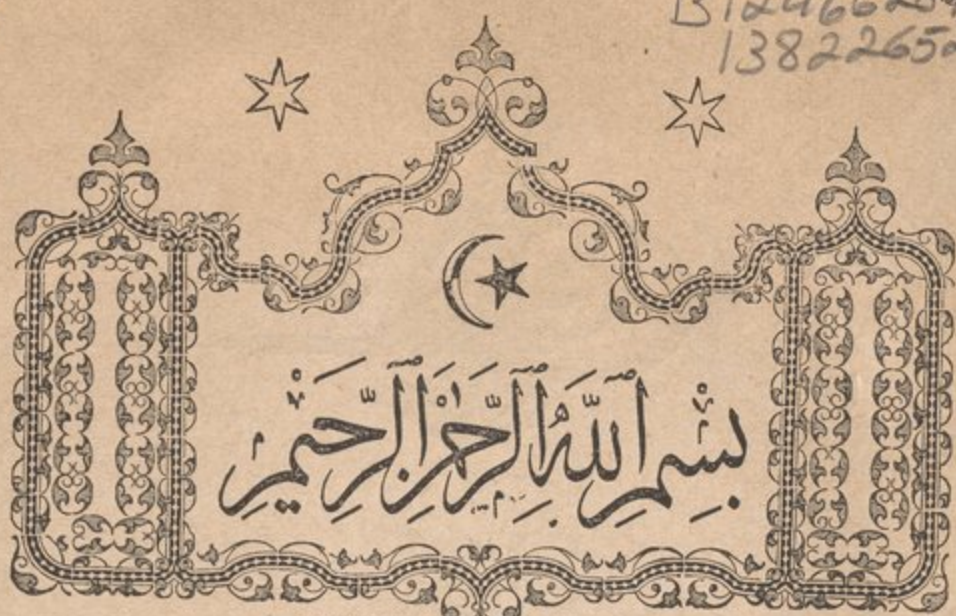 13822652
بِسْمِ ٱللَّهِ ٱلرَّحْمَٰنِ ٱلرَّحِيمِ